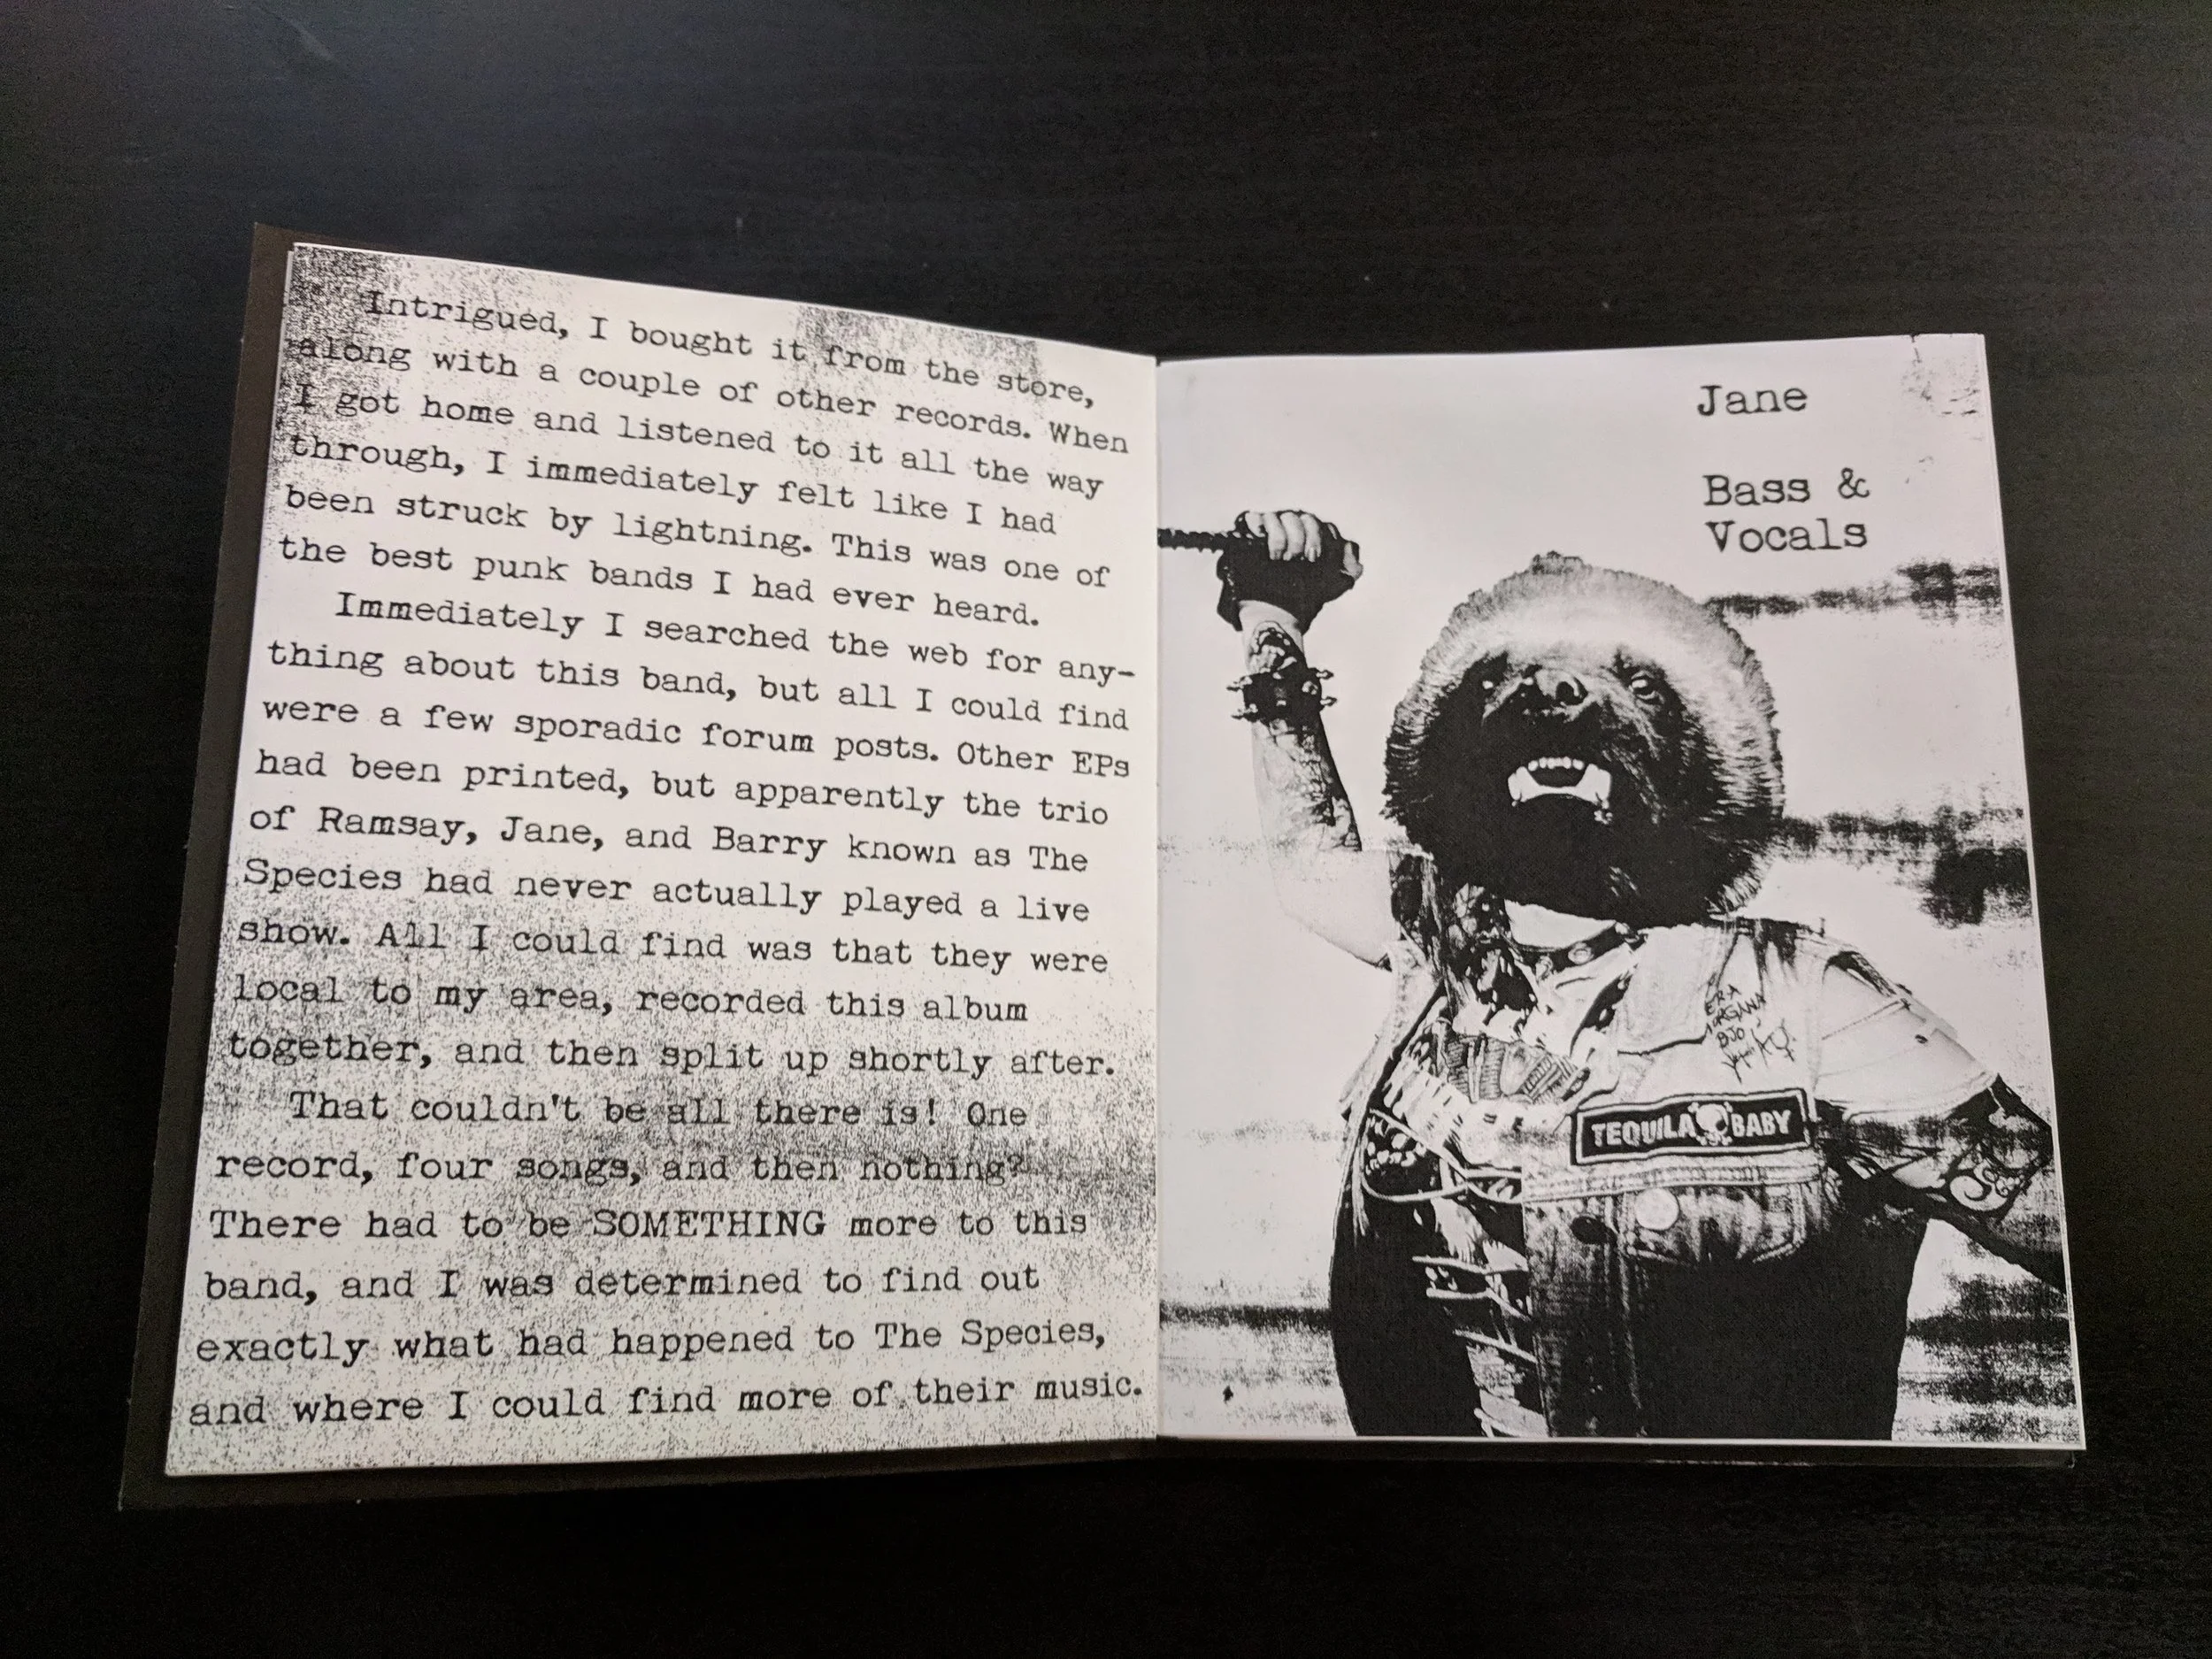 Intrigued, I bought it from the store,
along with a couple of other records. When
I got home and listened to it all the way
through, I immediately felt like I had
been struck by lightning. This was one of
the best punk bands I had ever heard.
Immediately I searched the web for any-
thing about this band, but all I could find
were a few sporadic forum posts. Other EPs
had been printed, but apparently the trio
of Ramsay, Jane, and Barry known as The
Species had never actually played a live
show. All I could find was that they were
local to my area, recorded this album
together, and then split up shortly after.
That couldn't be all there is! One
record, four songs, and then nothing?
There had to be SOMETHING more to this
band, and I was determined to find out
exactly what had happened to The Species,
and where I could find more of their music.
Jane
Bass &
Vocals
TEQUILA BABY